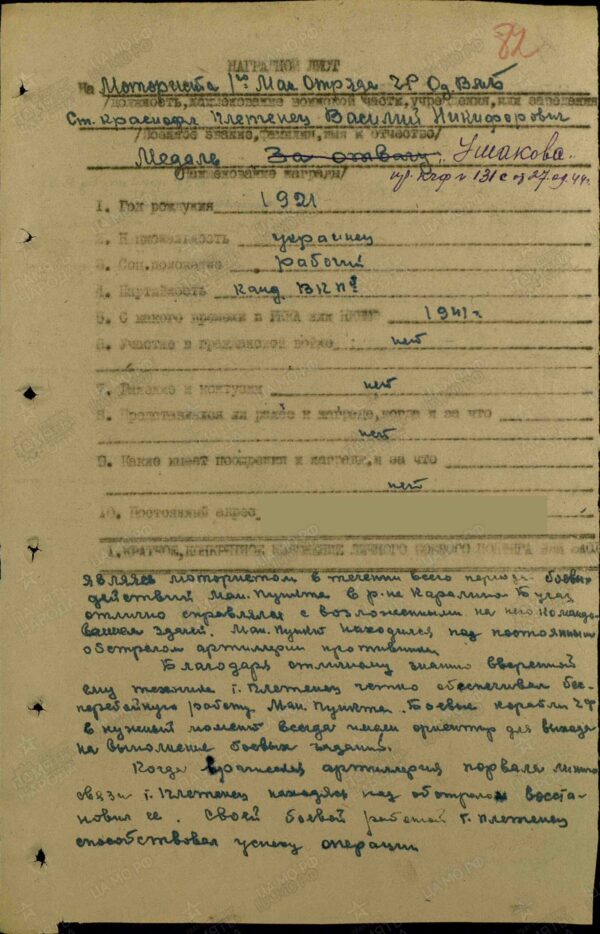 82
НАГРАДНОЙ ЛИСТ
На Моториста 1го Ман. Отряда
/должность, наименование воинской части, учреждения, или заведения
Ст. краснофл Плетенец Василий Никифорович
/военное звание, фамилия, имя и отчество/
Медаль За отвагу. Ушакова.
/наименование награды/
пр. КЧФ № 131с от 27.09.44г.
1. Год рождения 1921
2. Национальность украинец
3. Соц. положение рабочий
4. Партийность канд ВКП
5. С какого времени в РККА или 1941 г.
6. Участие в гражданской войне нет
7. Ранение и контузии нет
8. Представлялся ли ранее к награде, когда и за что
нет
9. Какие имеет поощрения и награды, и за что
нет
10. Постоянный адрес
1. КРАТКОЕ, КОНКРЕТНОЕ ИЗЛОЖЕНИЕ ЛИЧНОГО БОЕВОГО ПОДВИГА или
Являясь мотористом в течении всего периода боевых
действий Ман. Пункта в р-не Каралино Бугаз
отлично справлялся с возложенными на него командо-
ванием задач. Ман. Пункт находился под постоянным
обстрелом артиллерии противника
Благодаря отличному знанию вверенной
ему технике т. Плетенец четко обеспечивал бес-
перебойную работу Ман. Пункта. Боевые корабли
в нужный момент всегда имели ориентир для выхода
на выполнение боевых заданий.
Когда вражеская артиллерия порвала линию
связи т. Плетенец находясь под обстрелом восста-
новил ее. Своей боевой работой т. Плетенец
способствовал успеху операции